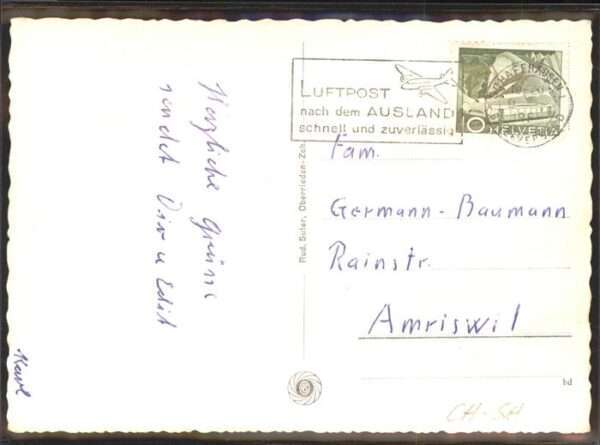 Herzliche Grüsse
sendet Vira u Edit
Karl
LUFTPOST
nach dem AUSLAND
schnell und zuverlässig
SCHAFFHAUSEN 1
10 HELVETIA
Fam.
Germann-Baumann
Rainstr.
Amriswil
Rud. Suter, Oberrieden-Zch.
bd
CH-SH